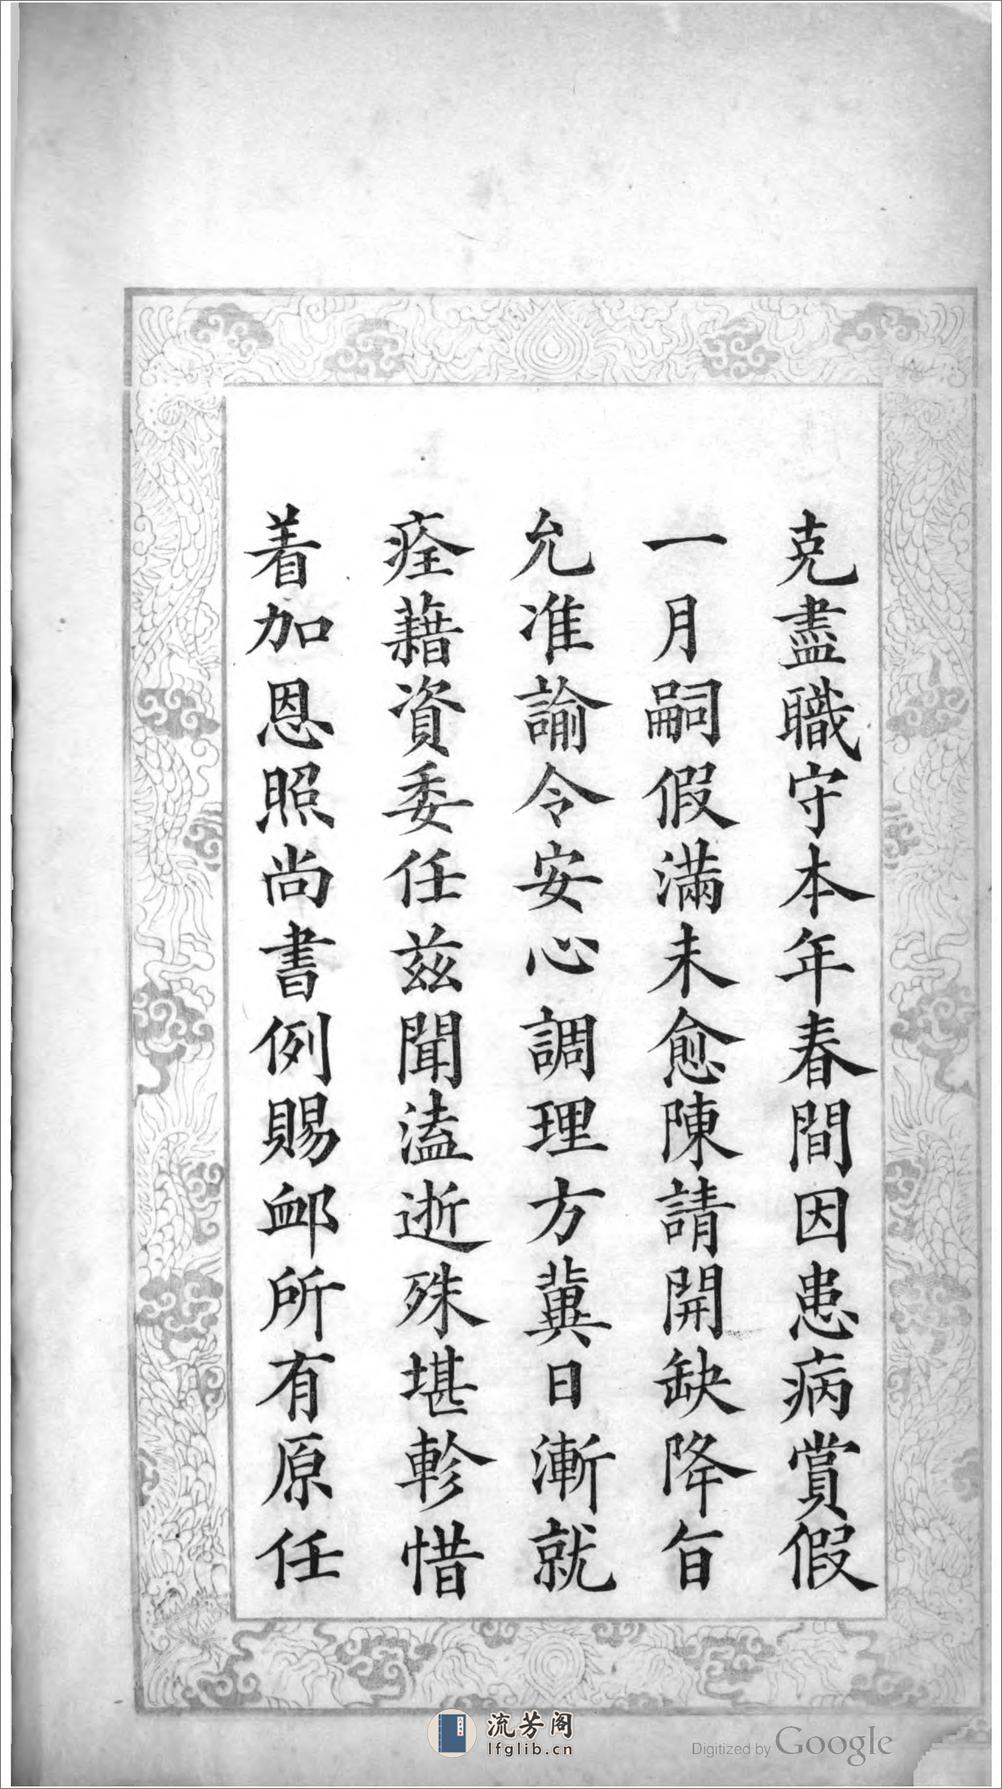 克盡職守本年春間因患病賞假
一月嗣假滿未愈陳請開缺降旨
允准諭令安心調理方冀日漸就
痊藉資委任茲聞溘逝殊堪軫惜
着加恩照尚書例賜卹所有原任
流芳阁
lfglib.cn
Digitized by Google